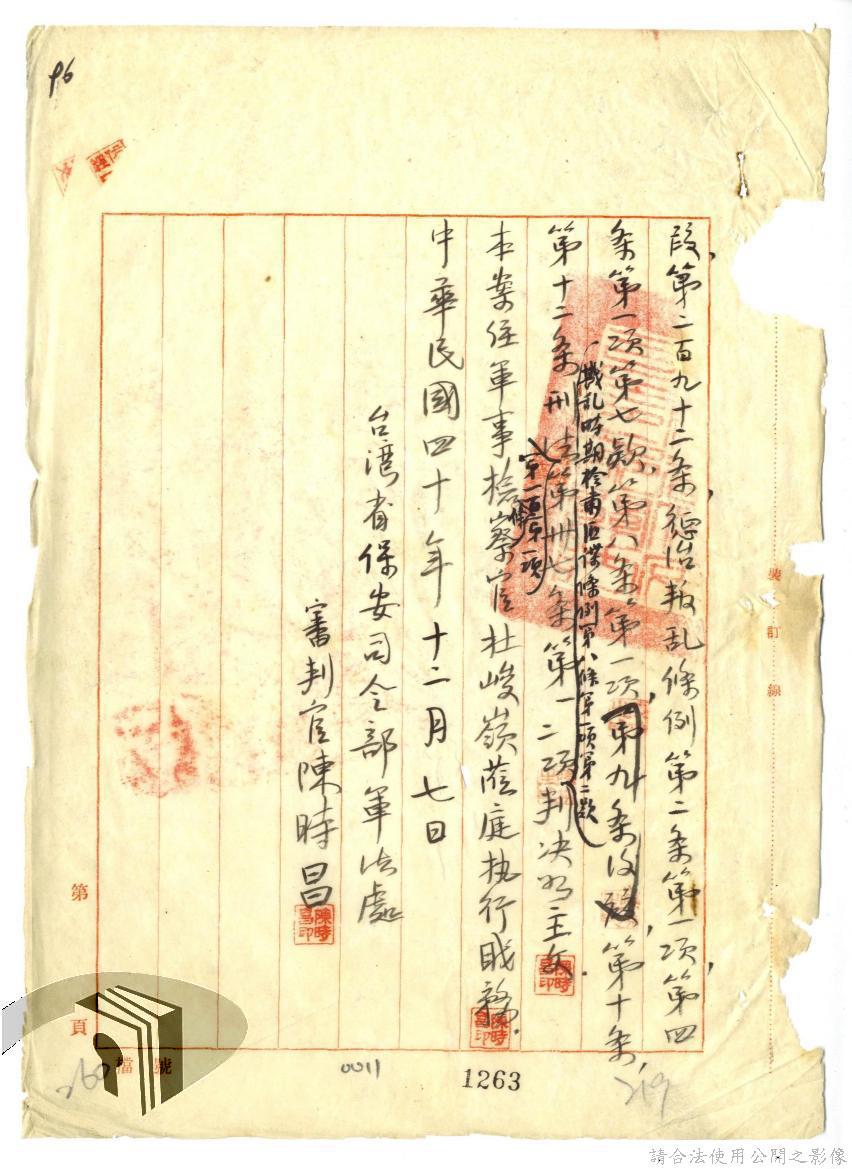 96
段,第二百九十二条,懲治叛乱條例第二条第一項,第四
条第一項第七款,第八条第一項,第九条後段,第十条,
一戡乱時期檢肅匪諜條例第八條第一項第二款
第十二条,刑法第卅七条第一二項判决如主文.
第一百條第一項
本案任軍事檢察官杜峻嶺蒞庭执行职務.
中華民國四十年十二月七日
台湾省保安司令部軍法處
審判官陳時昌
陳時昌印
裝訂線
第
頁
檔號
260
0011
1263
219
請合法使用公開之影像